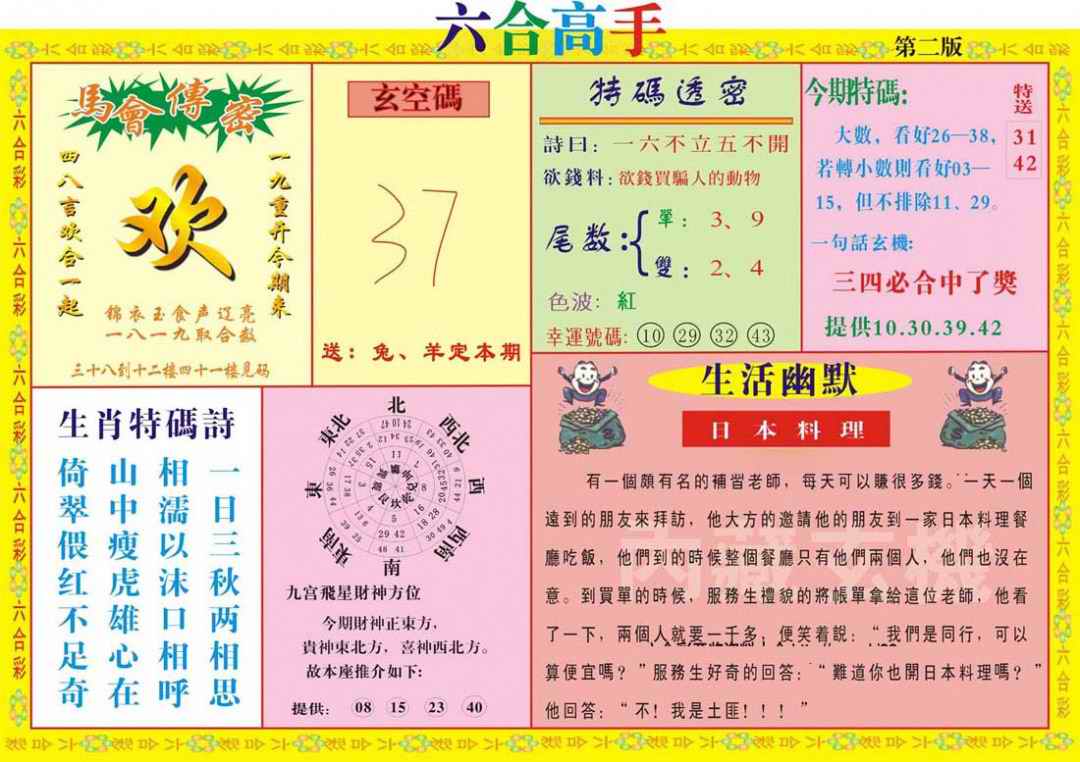 六合高手
第二版
馬會傳密
四八言欢合一起
欢
一九重开今期来
锦衣玉食声辽亮
一八一九取合数
三十八到十二楼四十一楼見码
玄空碼
37
送：兔、羊定本期
特碼透密
詩曰：一六不立五不開
欲錢料：欲錢買騙人的動物
尾数：
單：3、9
雙：2、4
色波：紅
幸運號碼：10 29 32 43
今期特碼:
特送
31
42
大數，看好26—38，
若轉小數則看好03—
15，但不排除11、29。
一句話玄機:
三四必合中了獎
提供10.30.39.42
生肖特碼詩
一日三秋两相思
相濡以沫口相呼
山中瘦虎雄心在
倚翠偎红不足奇
北
東北
西北
東
西
東南
西南
南
九宫飛星財神方位
今期財神正東方，
貴神東北方，喜神西北方。
故本座推介如下:
提供: 08 15 23 40
生活幽默
日本料理
有一個頗有名的補習老師，每天可以賺很多錢。一天一個
遠到的朋友來拜訪，他大方的邀請他的朋友到一家日本料理餐
廳吃飯，他們到的時候整個餐廳只有他們兩個人，他們也沒在
意。到買單的時候，服務生禮貌的將帳單拿給這位老師，他看
了一下，兩個人就要一千多；便笑着說：“我們是同行，可以
算便宜嗎？”服務生好奇的回答：“難道你也開日本料理嗎？”
他回答：“不！我是土匪！！！”